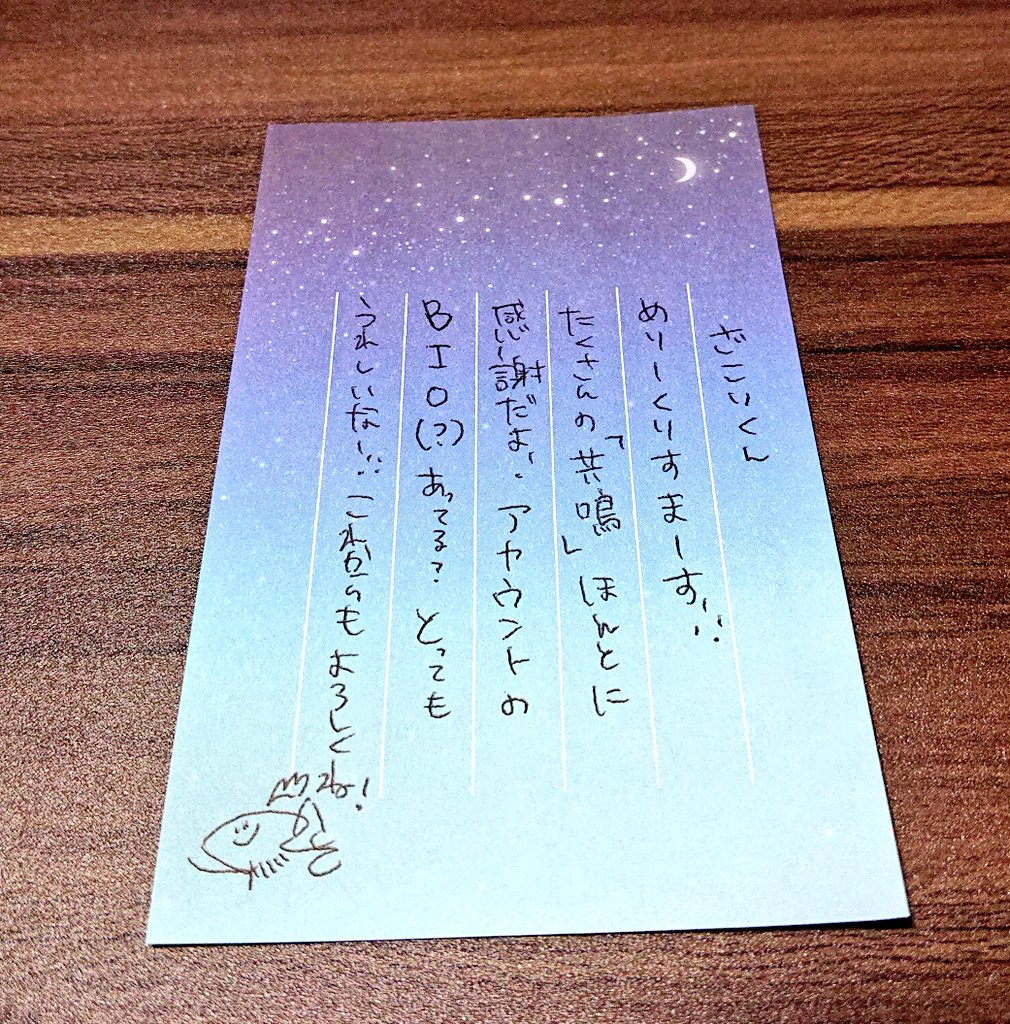 ざこいくん
めりーくりすまーす!!
たくさんの「共鳴」ほんとに
感謝だよ、アカウントの
BIO(?)あってる?とっても
うれしいな!!これからもよろしく
ね!